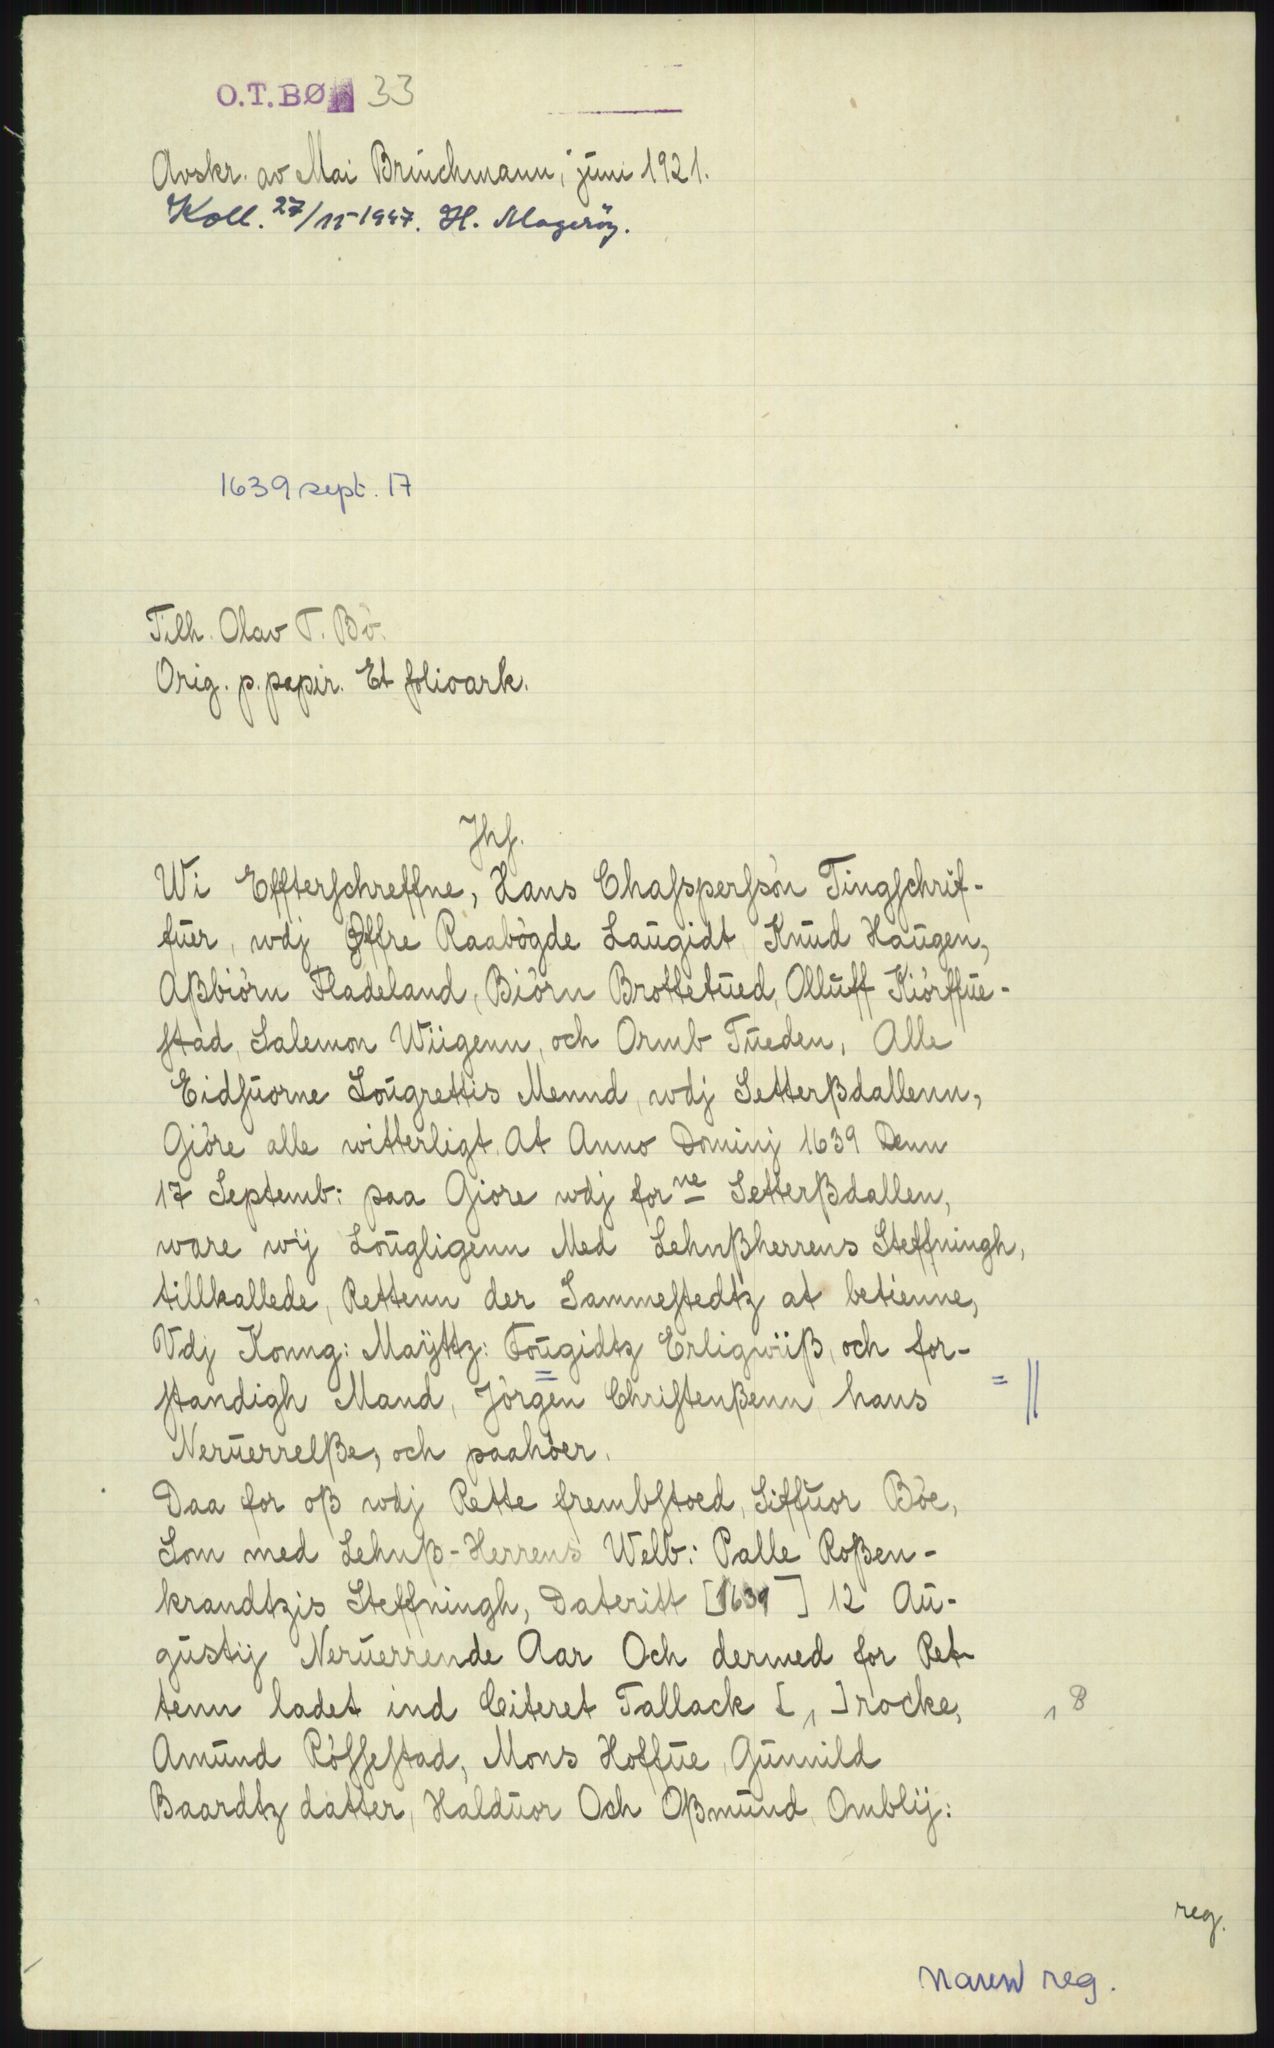 O.T.BØ 33
Avskr. av Mai Brinchmann, juni 1921.
Koll. 27/11-1947. H. Magerøy.
1639 sept. 17
Tilh. Olav T. Bö.
Orig. p. papir. Et folioark.
Jhs.
Wi Effterschreffne, Hans Chaſsperſsön Tingſchrif-
fuer, wdj Øffre Raabögde Laugidt, Knud Haugen,
Aßbiörn Fladeland, Biörn Brottetued, Olluff Kiörffue-
ſtad, Salemon Wiigenn, och Ormb Tueden, Alle
Eidſuorne Lougrettis Mennd, wdj Setterßdallenn,
Giöre alle witterligt, At Anno Dominj 1639 Denn
17 Septemb: paa Giore wdj forne Setterßdallen,
ware wij Lougligenn Med Lehnßherrens Steffningh,
tillkallede, Rettenn der Sammeſtedtz at betienne,
Vdj Konng: Maÿttz: Fougidtz Erligwiiß, och for- =
ſtandigh Mand, Jörgen Chriſtenßenn hans
Neruerrelße, och paahöer.
Daa for oß wdj Rette frembſtoed, Siffuor Böe,
Som med Lehnß-Herrens Welb: Palle Roßen-
krandtzis Steffningh, Dateritt [1639] 12 Au-
gustij Neruerrende Aar Och dermed for Ret-
tenn ladet ind Citeret Tallack [ ] rocke, 8
Amund Röſſeſtad, Mons Hoffue, Gunnild
Baardtz datter, Halduor Och Oßmund Omblij:
reg.
navn reg.